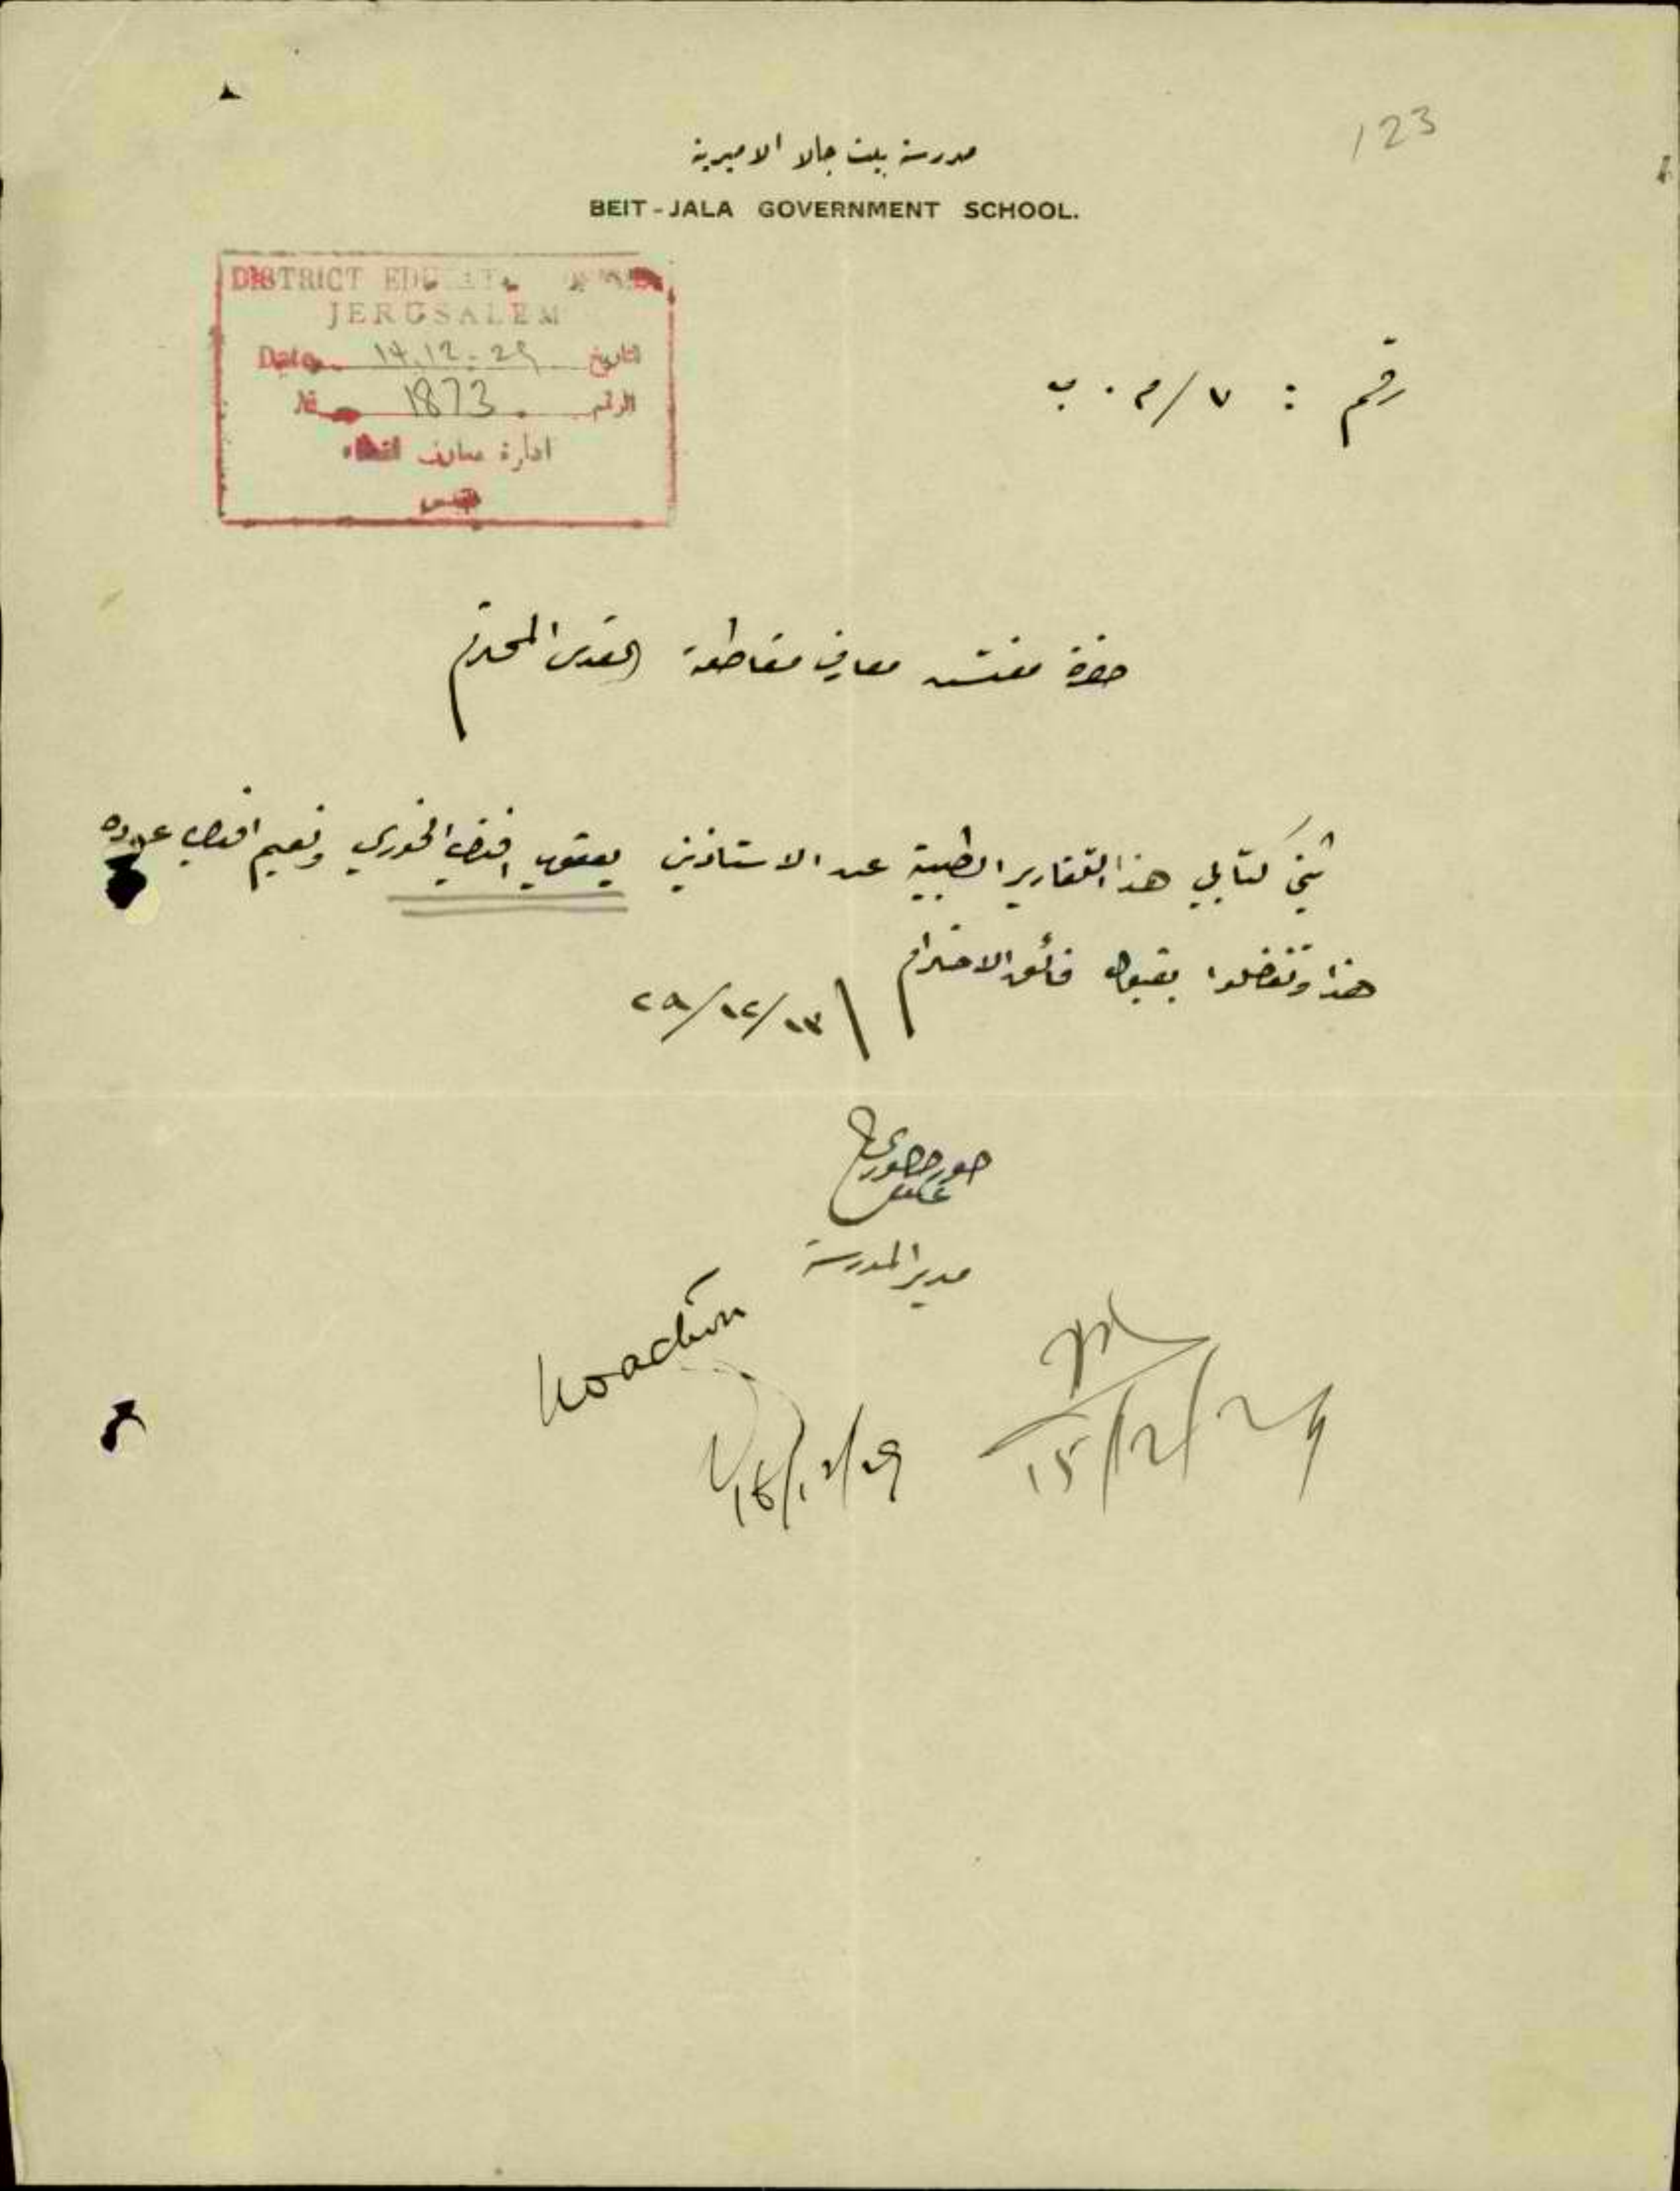 123
مدرسة بيت جالا الاميرية
BEIT-JALA GOVERNMENT SCHOOL.
DISTRICT
JERUSALEM
Date 14.12.29 التاريخ
No 1873 الرقم
ادارة معارف
رقم : ٧/م.ب
حضرة مفتش معارف مقاطعة القدس المحترم
كتابي هذا التقارير الطبية عن الاستاذين يعقوب افندي الخوري ونعيم افندي عوده
هذا وتفضلوا بقبول فائق الاحترام
٢٩/١٢/١٣
مدير المدرسة
No action
15/12/29
16/12/29